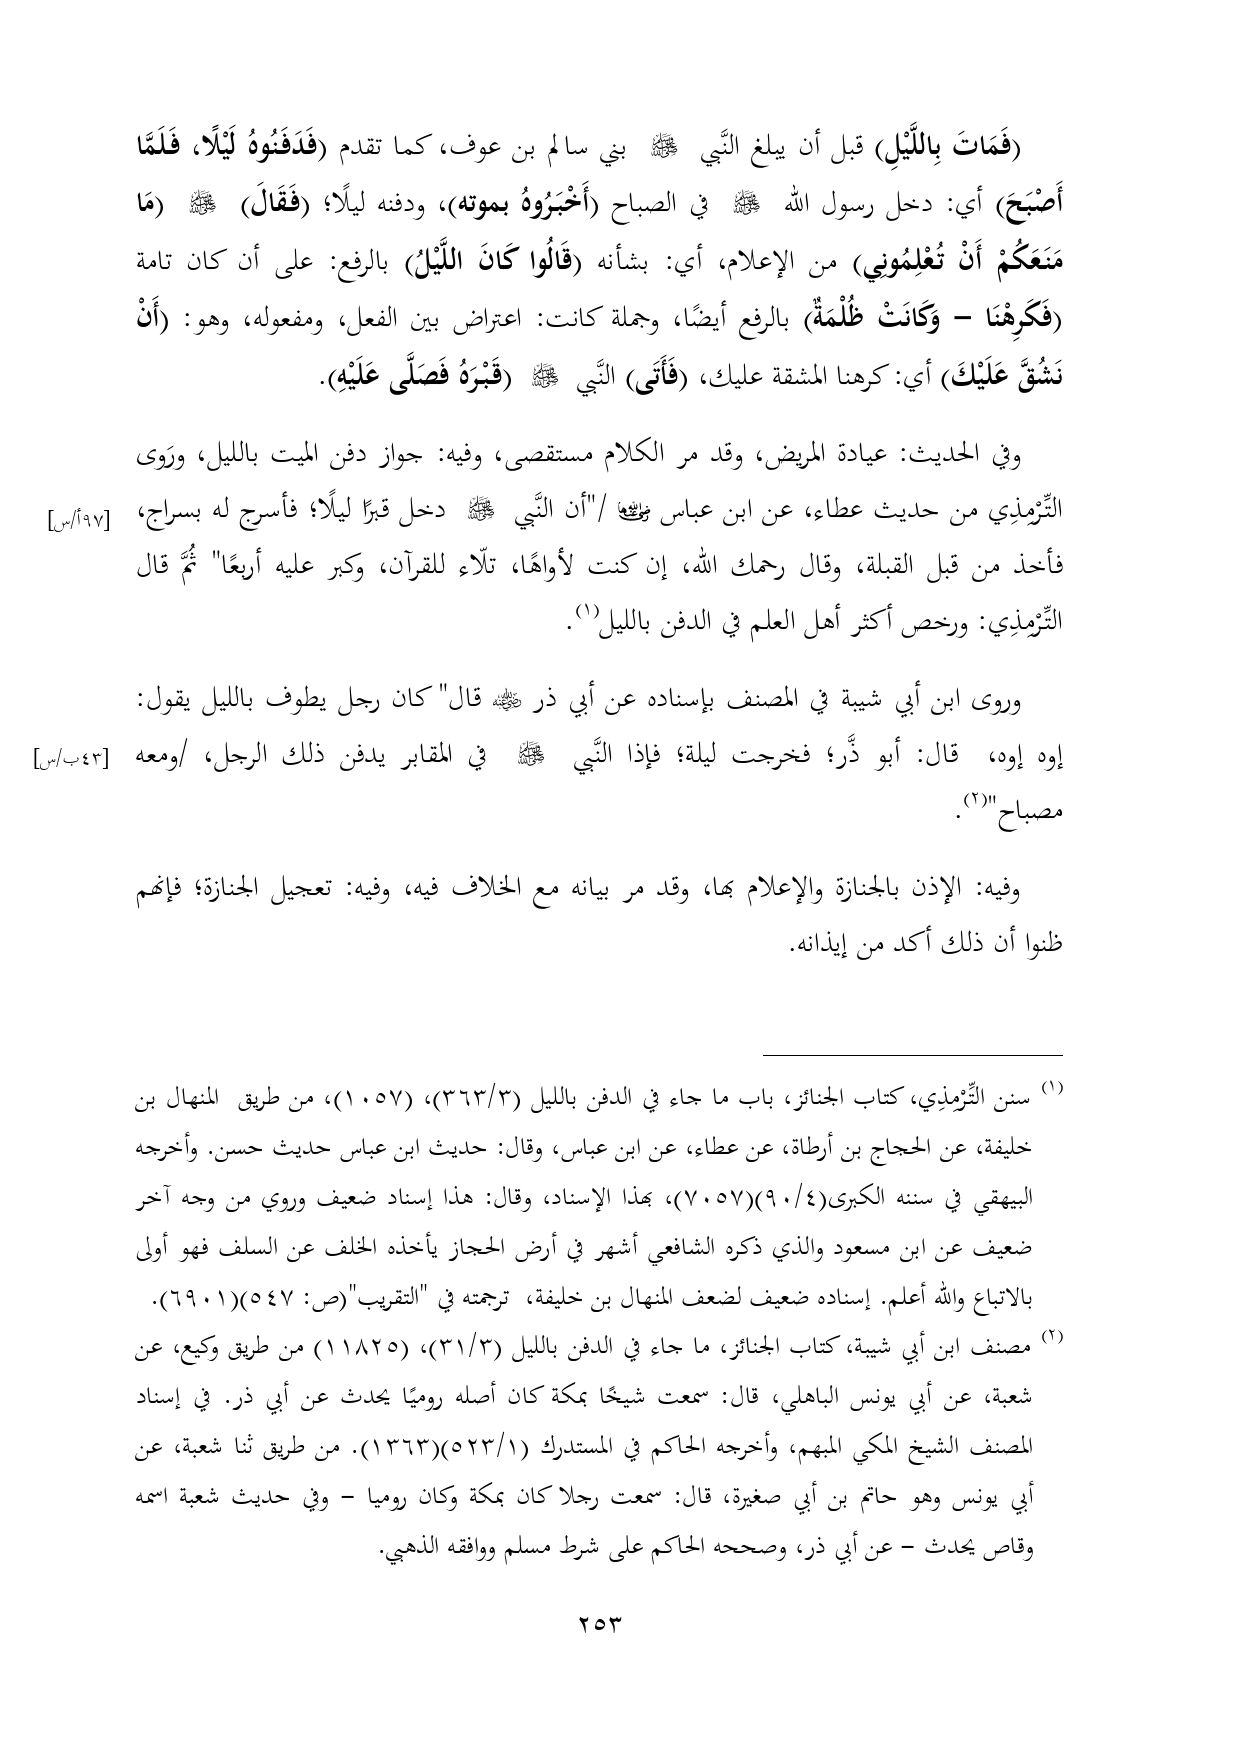 (فَمَاتَ بِاللَّيْلِ) قبل أن يبلغ النَّبي ﷺ بني سالم بن عوف، كما تقدم (فَدَفَنُوهُ لَيْلًا، فَلَمَّا
أَصْبَحَ) أي: دخل رسول الله ﷺ في الصباح (أَخْبَرُوهُ بموته)، ودفنه ليلًا؛ (فَقَالَ) ﷺ (مَا
مَنَعَكُمْ أَنْ تُعْلِمُونِي) من الإعلام، أي: بشأنه (قَالُوا كَانَ اللَّيْلُ) بالرفع: على أن كان تامة
(فَكَرِهْنَا – وَكَانَتْ ظُلْمَةٌ) بالرفع أيضًا، وجملة كانت: اعتراض بين الفعل، ومفعوله، وهو: (أَنْ
نَشُقَّ عَلَيْكَ) أي: كرهنا المشقة عليك، (فَأَتَى) النَّبي ﷺ (قَبْرَهُ فَصَلَّى عَلَيْهِ).
وفي الحديث: عيادة المريض، وقد مر الكلام مستقصى، وفيه: جواز دفن الميت بالليل، ورَوى
التِّرْمِذِي من حديث عطاء، عن ابن عباس رضي الله عنهما /"أن النَّبي ﷺ دخل قبرًا ليلًا؛ فأسرج له بسراج، [٩٧أ/س]
فأخذ من قبل القبلة، وقال رحمك الله، إن كنت لأواهًا، تلّاء للقرآن، وكبر عليه أربعًا" ثُمَّ قال
التِّرْمِذِي: ورخص أكثر أهل العلم في الدفن بالليل(١).
وروى ابن أبي شيبة في المصنف بإسناده عن أبي ذر رضي الله عنه قال" كان رجل يطوف بالليل يقول:
إوه إوه، قال: أبو ذَّر؛ فخرجت ليلة؛ فإذا النَّبي ﷺ في المقابر يدفن ذلك الرجل، /ومعه [٤٣ب/س]
مصباح"(٢).
وفيه: الإذن بالجنازة والإعلام بها، وقد مر بيانه مع الخلاف فيه، وفيه: تعجيل الجنازة؛ فإنهم
ظنوا أن ذلك أكد من إيذانه.
(١) سنن التِّرْمِذِي، كتاب الجنائز، باب ما جاء في الدفن بالليل (٣٦٣/٣)، (١٠٥٧)، من طريق المنهال بن
خليفة، عن الحجاج بن أرطاة، عن عطاء، عن ابن عباس، وقال: حديث ابن عباس حديث حسن. وأخرجه
البيهقي في سننه الكبرى(٩٠/٤)(٧٠٥٧)، بهذا الإسناد، وقال: هذا إسناد ضعيف وروي من وجه آخر
ضعيف عن ابن مسعود والذي ذكره الشافعي أشهر في أرض الحجاز يأخذه الخلف عن السلف فهو أولى
بالاتباع والله أعلم. إسناده ضعيف لضعف المنهال بن خليفة، ترجمته في "التقريب"(ص: ٥٤٧)(٦٩٠١).
(٢) مصنف ابن أبي شيبة، كتاب الجنائز، ما جاء في الدفن بالليل (٣١/٣)، (١١٨٢٥) من طريق وكيع، عن
شعبة، عن أبي يونس الباهلي، قال: سمعت شيخًا بمكة كان أصله روميًا يحدث عن أبي ذر. في إسناد
المصنف الشيخ المكي المبهم، وأخرجه الحاكم في المستدرك (٥٢٣/١)(١٣٦٣). من طريق ثنا شعبة، عن
أبي يونس وهو حاتم بن أبي صغيرة، قال: سمعت رجلا كان بمكة وكان روميا – وفي حديث شعبة اسمه
وقاص يحدث – عن أبي ذر، وصححه الحاكم على شرط مسلم ووافقه الذهبي.
٢٥٣